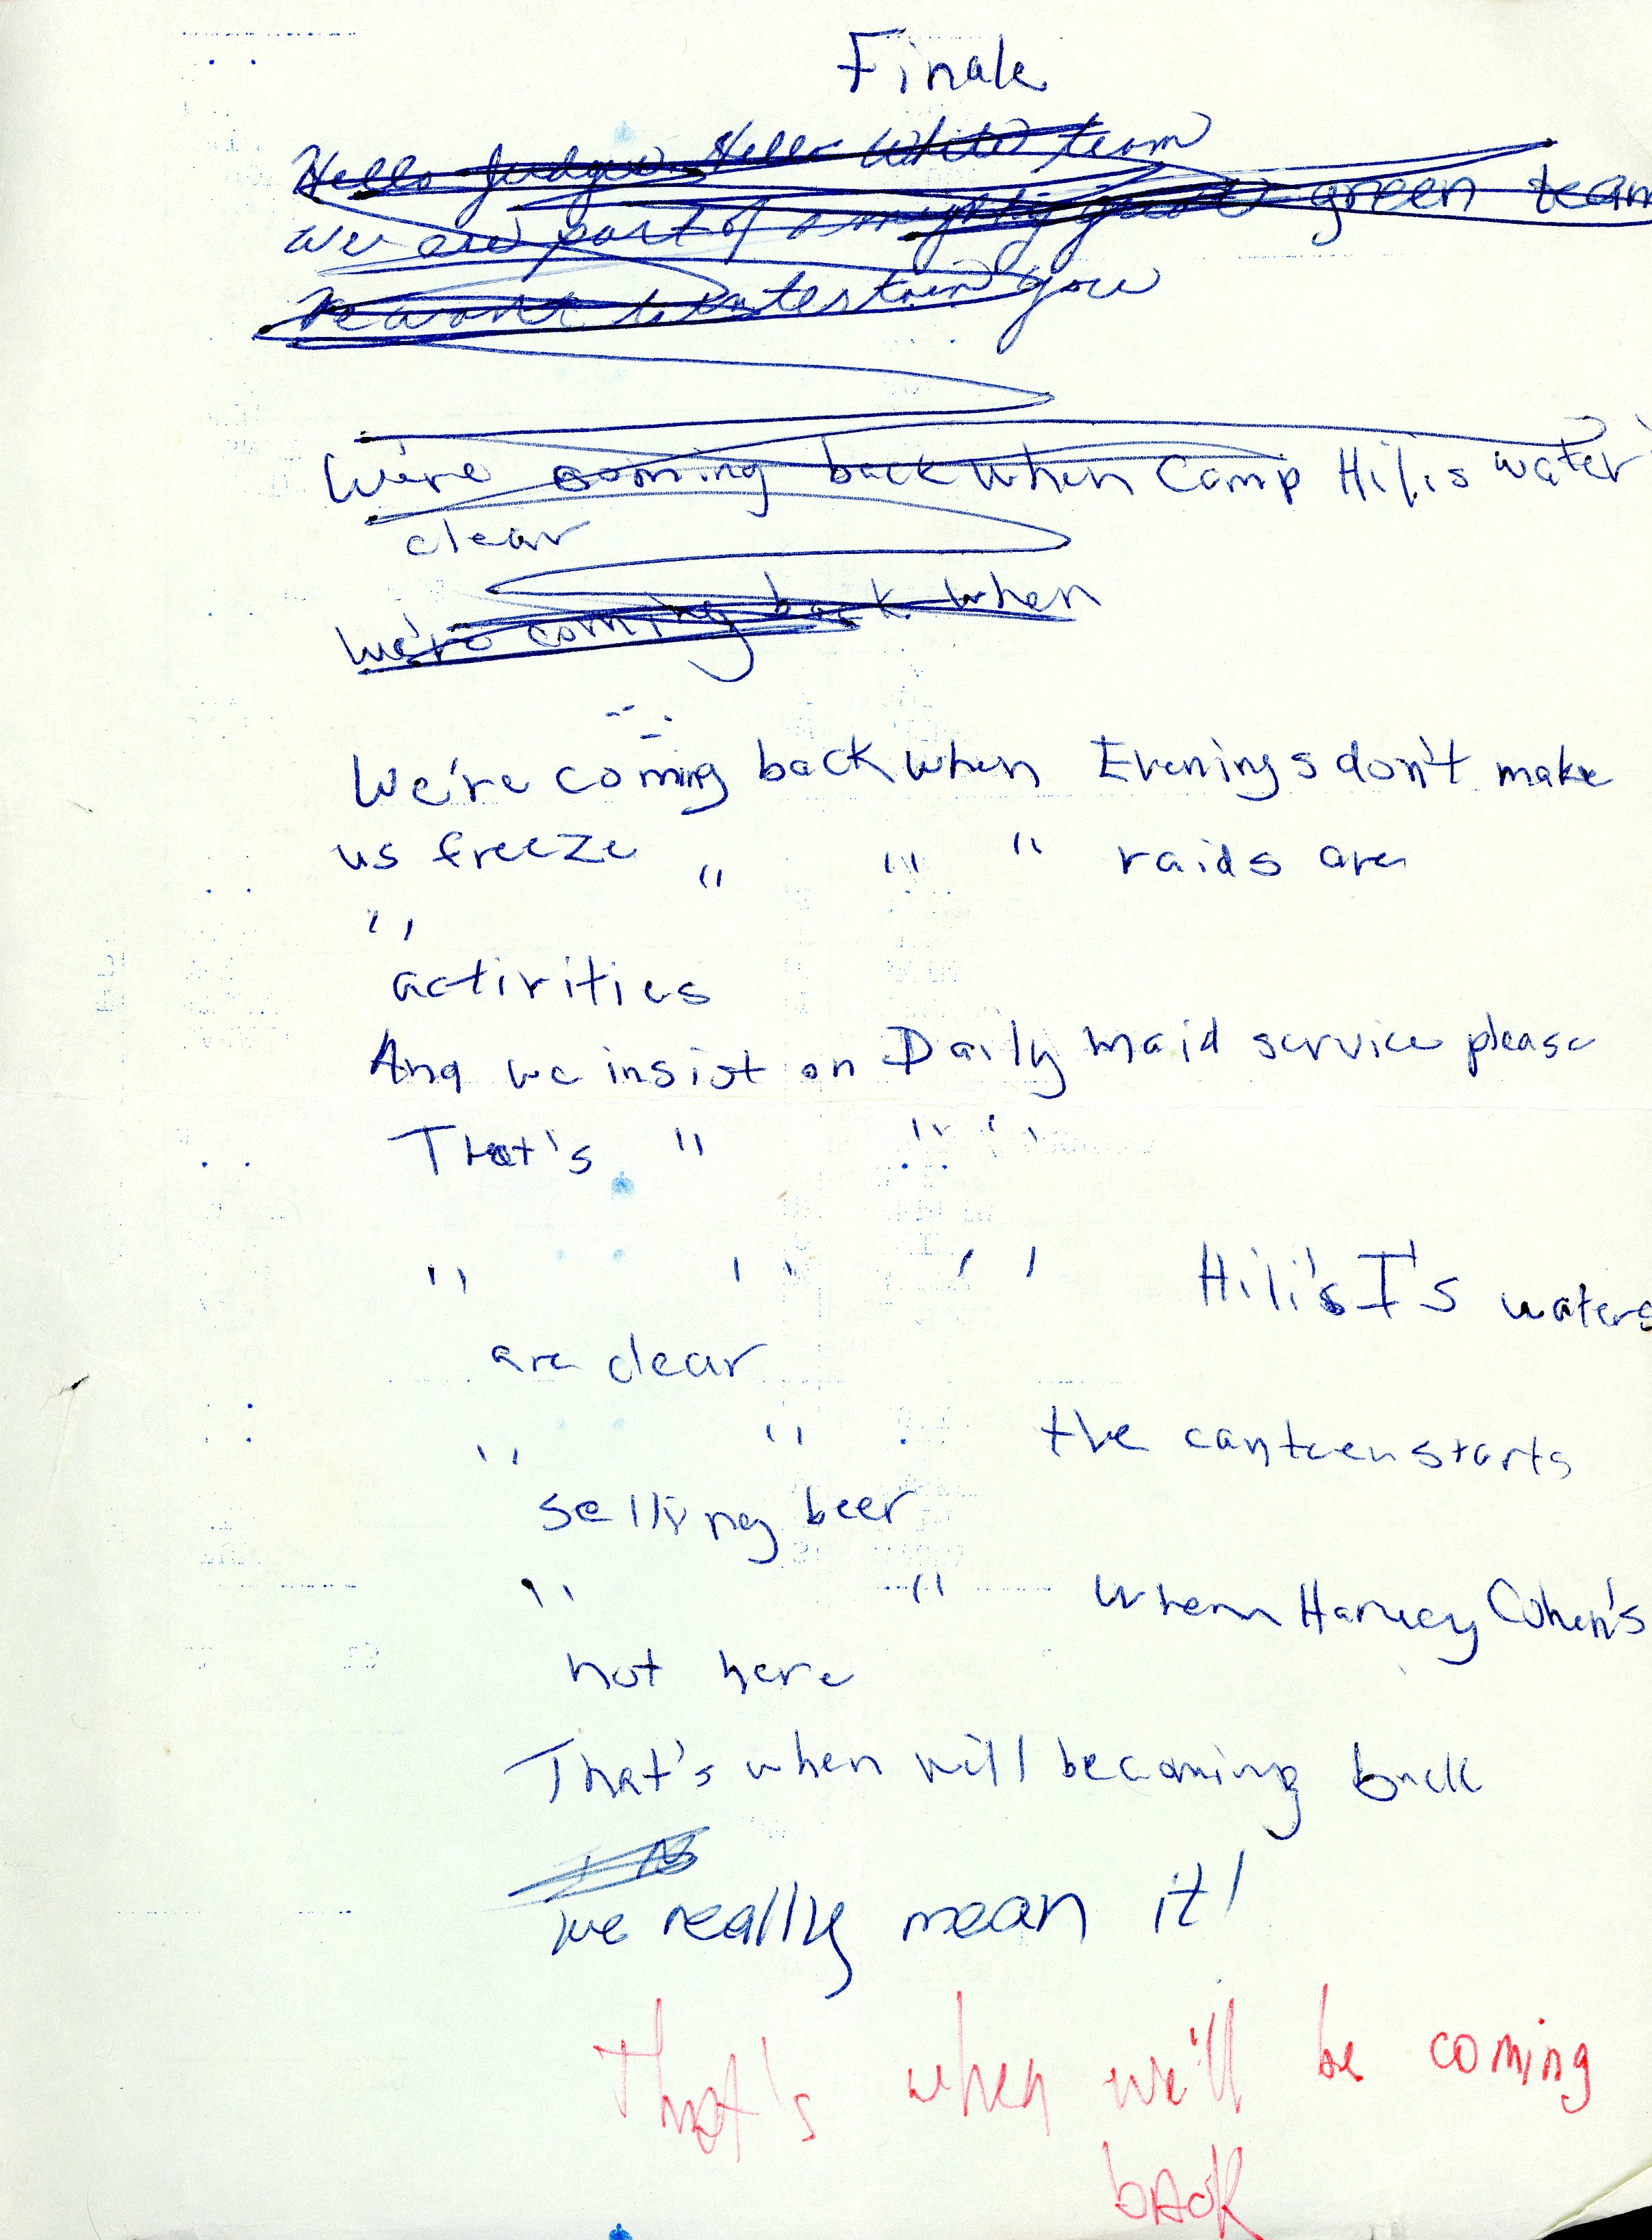 Finale
Hello Judges Hello White team
we are part of a mighty good green team
We want to entertain you
We're coming back when Camp Hilis water
clear
We're coming back when
We're coming back when Evenings don't make
us freeze " " " raids are
"
activities
And we insist on Daily maid service please
That's " " "
" " " Hili's I's waters
are clear
" " the canteen starts
selling beer
" " when Harvey Cohen's
not here
That's when will be coming back
we really mean it!
That's when we'll be coming
back